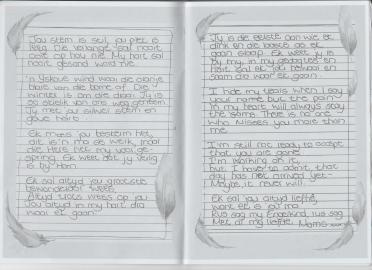 Jou stem is stil, jou plek is
leeg. Die verlange sal nooit
ooit op hou nie. My hart sal
nooit gesond word nie.
'n Yskoue wind waai die oranje
blare van die bome af. Die
winter is om die draai. Jy is
so skielik van ons weg geneem.
Jy met jou silwer stem en
goue hart.
Ek mis jou besterm het,
dit is in ma se werk, maar
die Here het my voor ge-
spring. Ek weet dat jy veilig
is by Hom.
Ek sal altyd jou grootste
bewonderaar wees.
Altyd trots wees op jou
Jou altyd in my hart dra
waar ek gaan
Jy is die eerste aan wie ek
dink en die laaste as ek
gaan slaap. Ek weet jy is
by my, in my gedagtes en
hart. Sal ek jou behou en
saam dra waar ek gaan.
I hide my tears when I say
your name but the pain
in my heart will always stay
the same. There is no one
who misses you more than
me.
I'm still not ready to accept
that you are gone.
I'm working on it,
but I have to admit, that
day has not arrived yet-
Maybe it never will.
Ek sal jou altyd liefhê,
want ek is jou ma.
Rus sag my Engelkind, rus sag
Met al my liefde. Moms